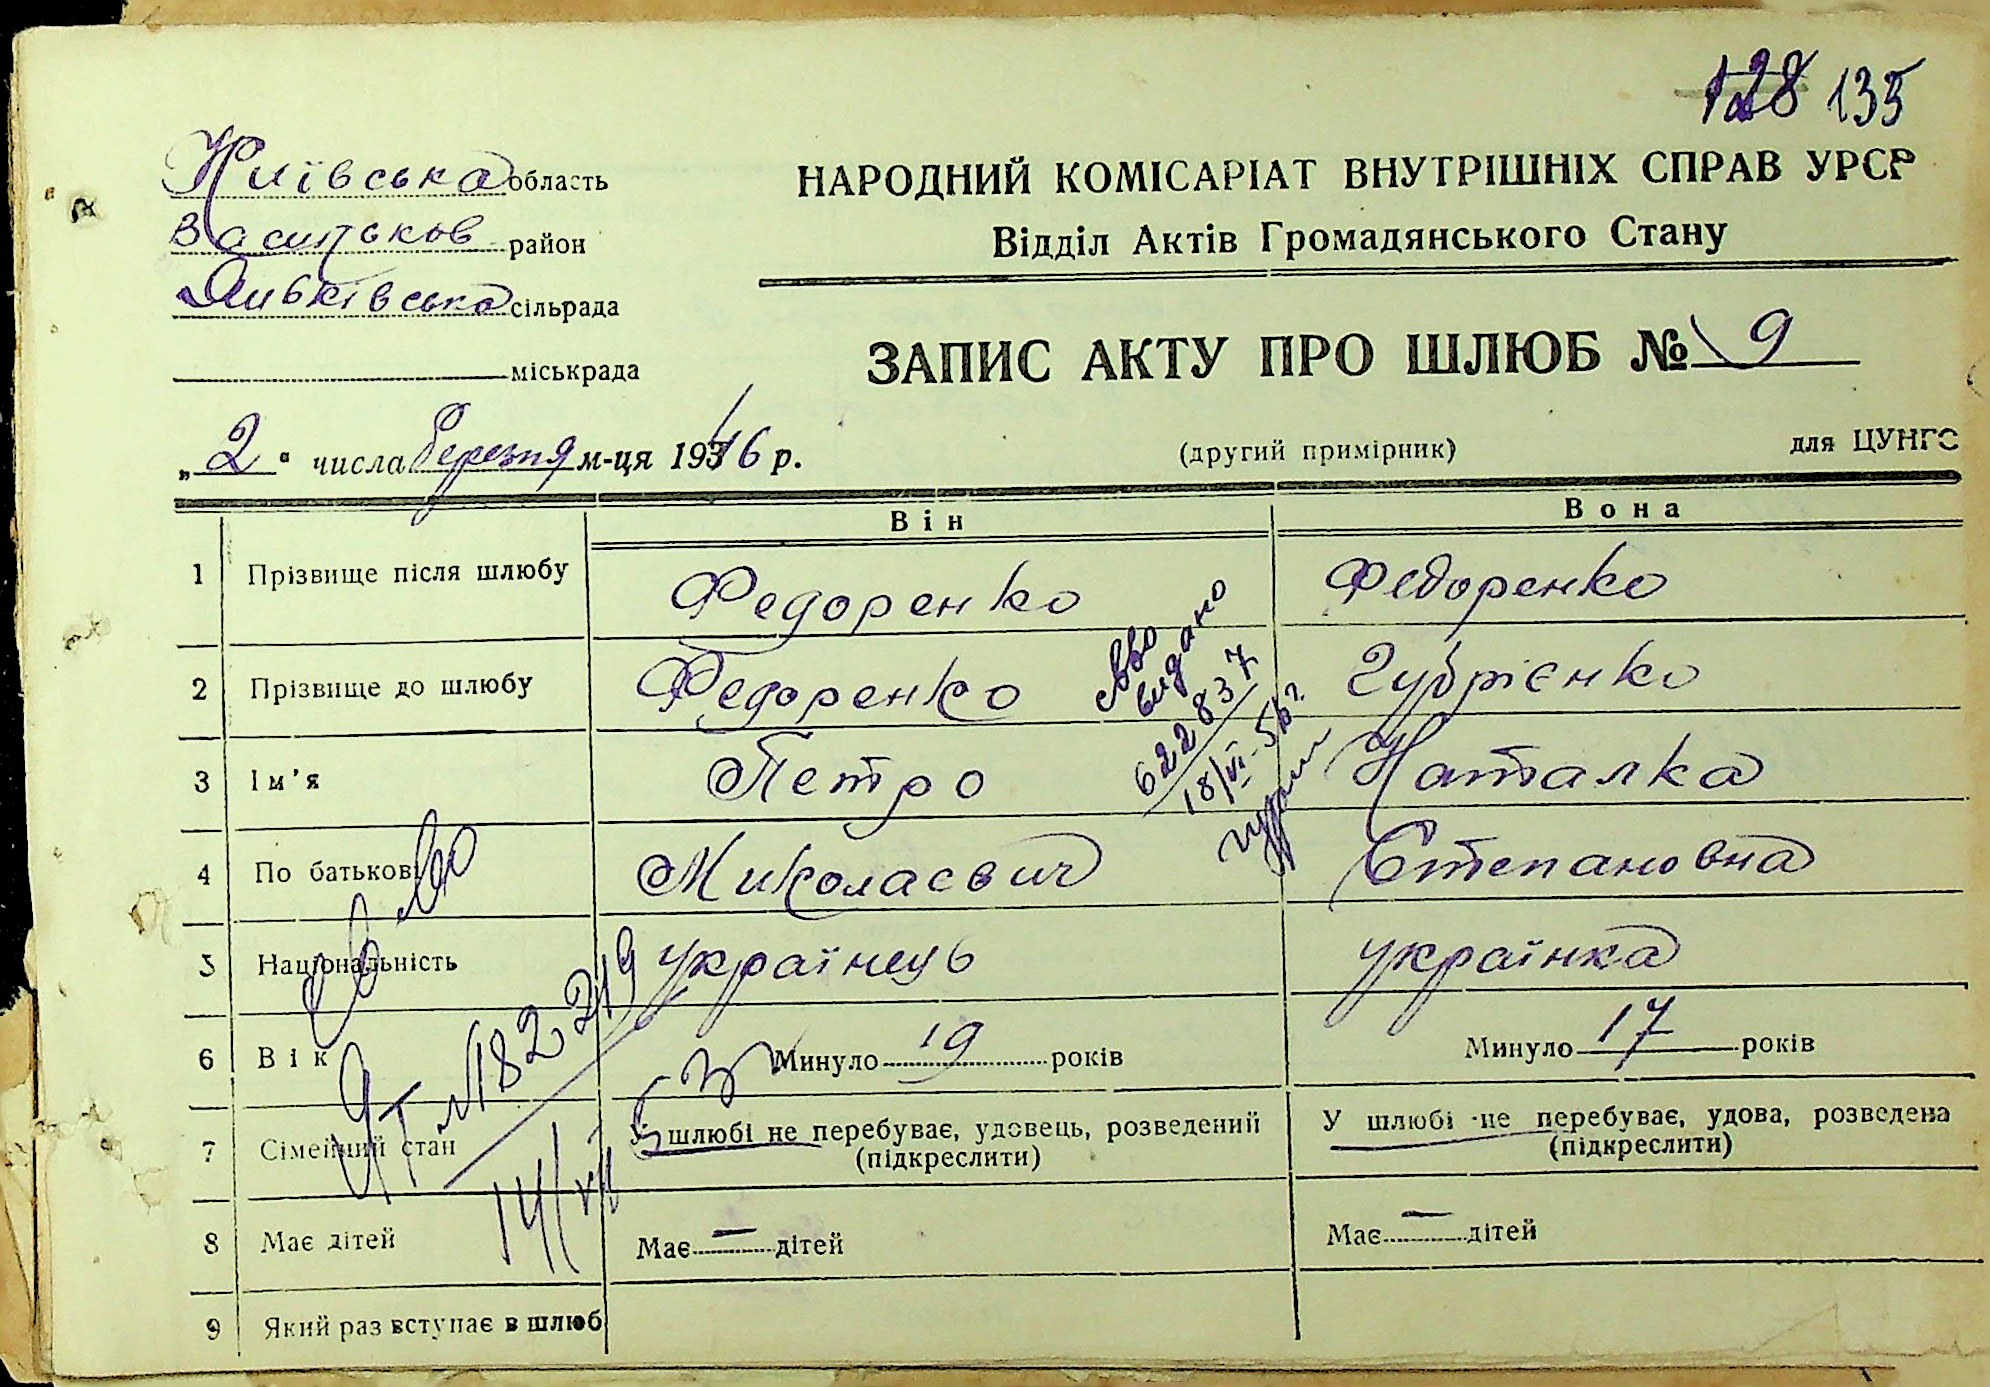 128 135
Київська область
Васильков район
Пивківська сільрада
міськрада
НАРОДНИЙ КОМІСАРІАТ ВНУТРІШНІХ СПРАВ УРСР
Відділ Актів Громадянського Стану
ЗАПИС АКТУ ПРО ШЛЮБ № 9
„2" числа березня м-ця 1946 р.
(другий примірник)
для ЦУНГО
Він
Вона
1 Прізвище після шлюбу Федоренко Федоренко
2 Прізвище до шлюбу Федоренко Губрієнко
3 Ім'я Петро Наталка
4 По батькові Миколаєвич Степановна
5 Національність українець українка
6 Вік Минуло 19 років Минуло 17 років
7 Сімейний стан У шлюбі не перебуває, удовець, розведений (підкреслити) У шлюбі не перебуває, удова, розведена (підкреслити)
8 Має дітей Має — дітей Має — дітей
9 Який раз вступає в шлюб
видано
622837
18/VI-56 г.
№182219
14/VII